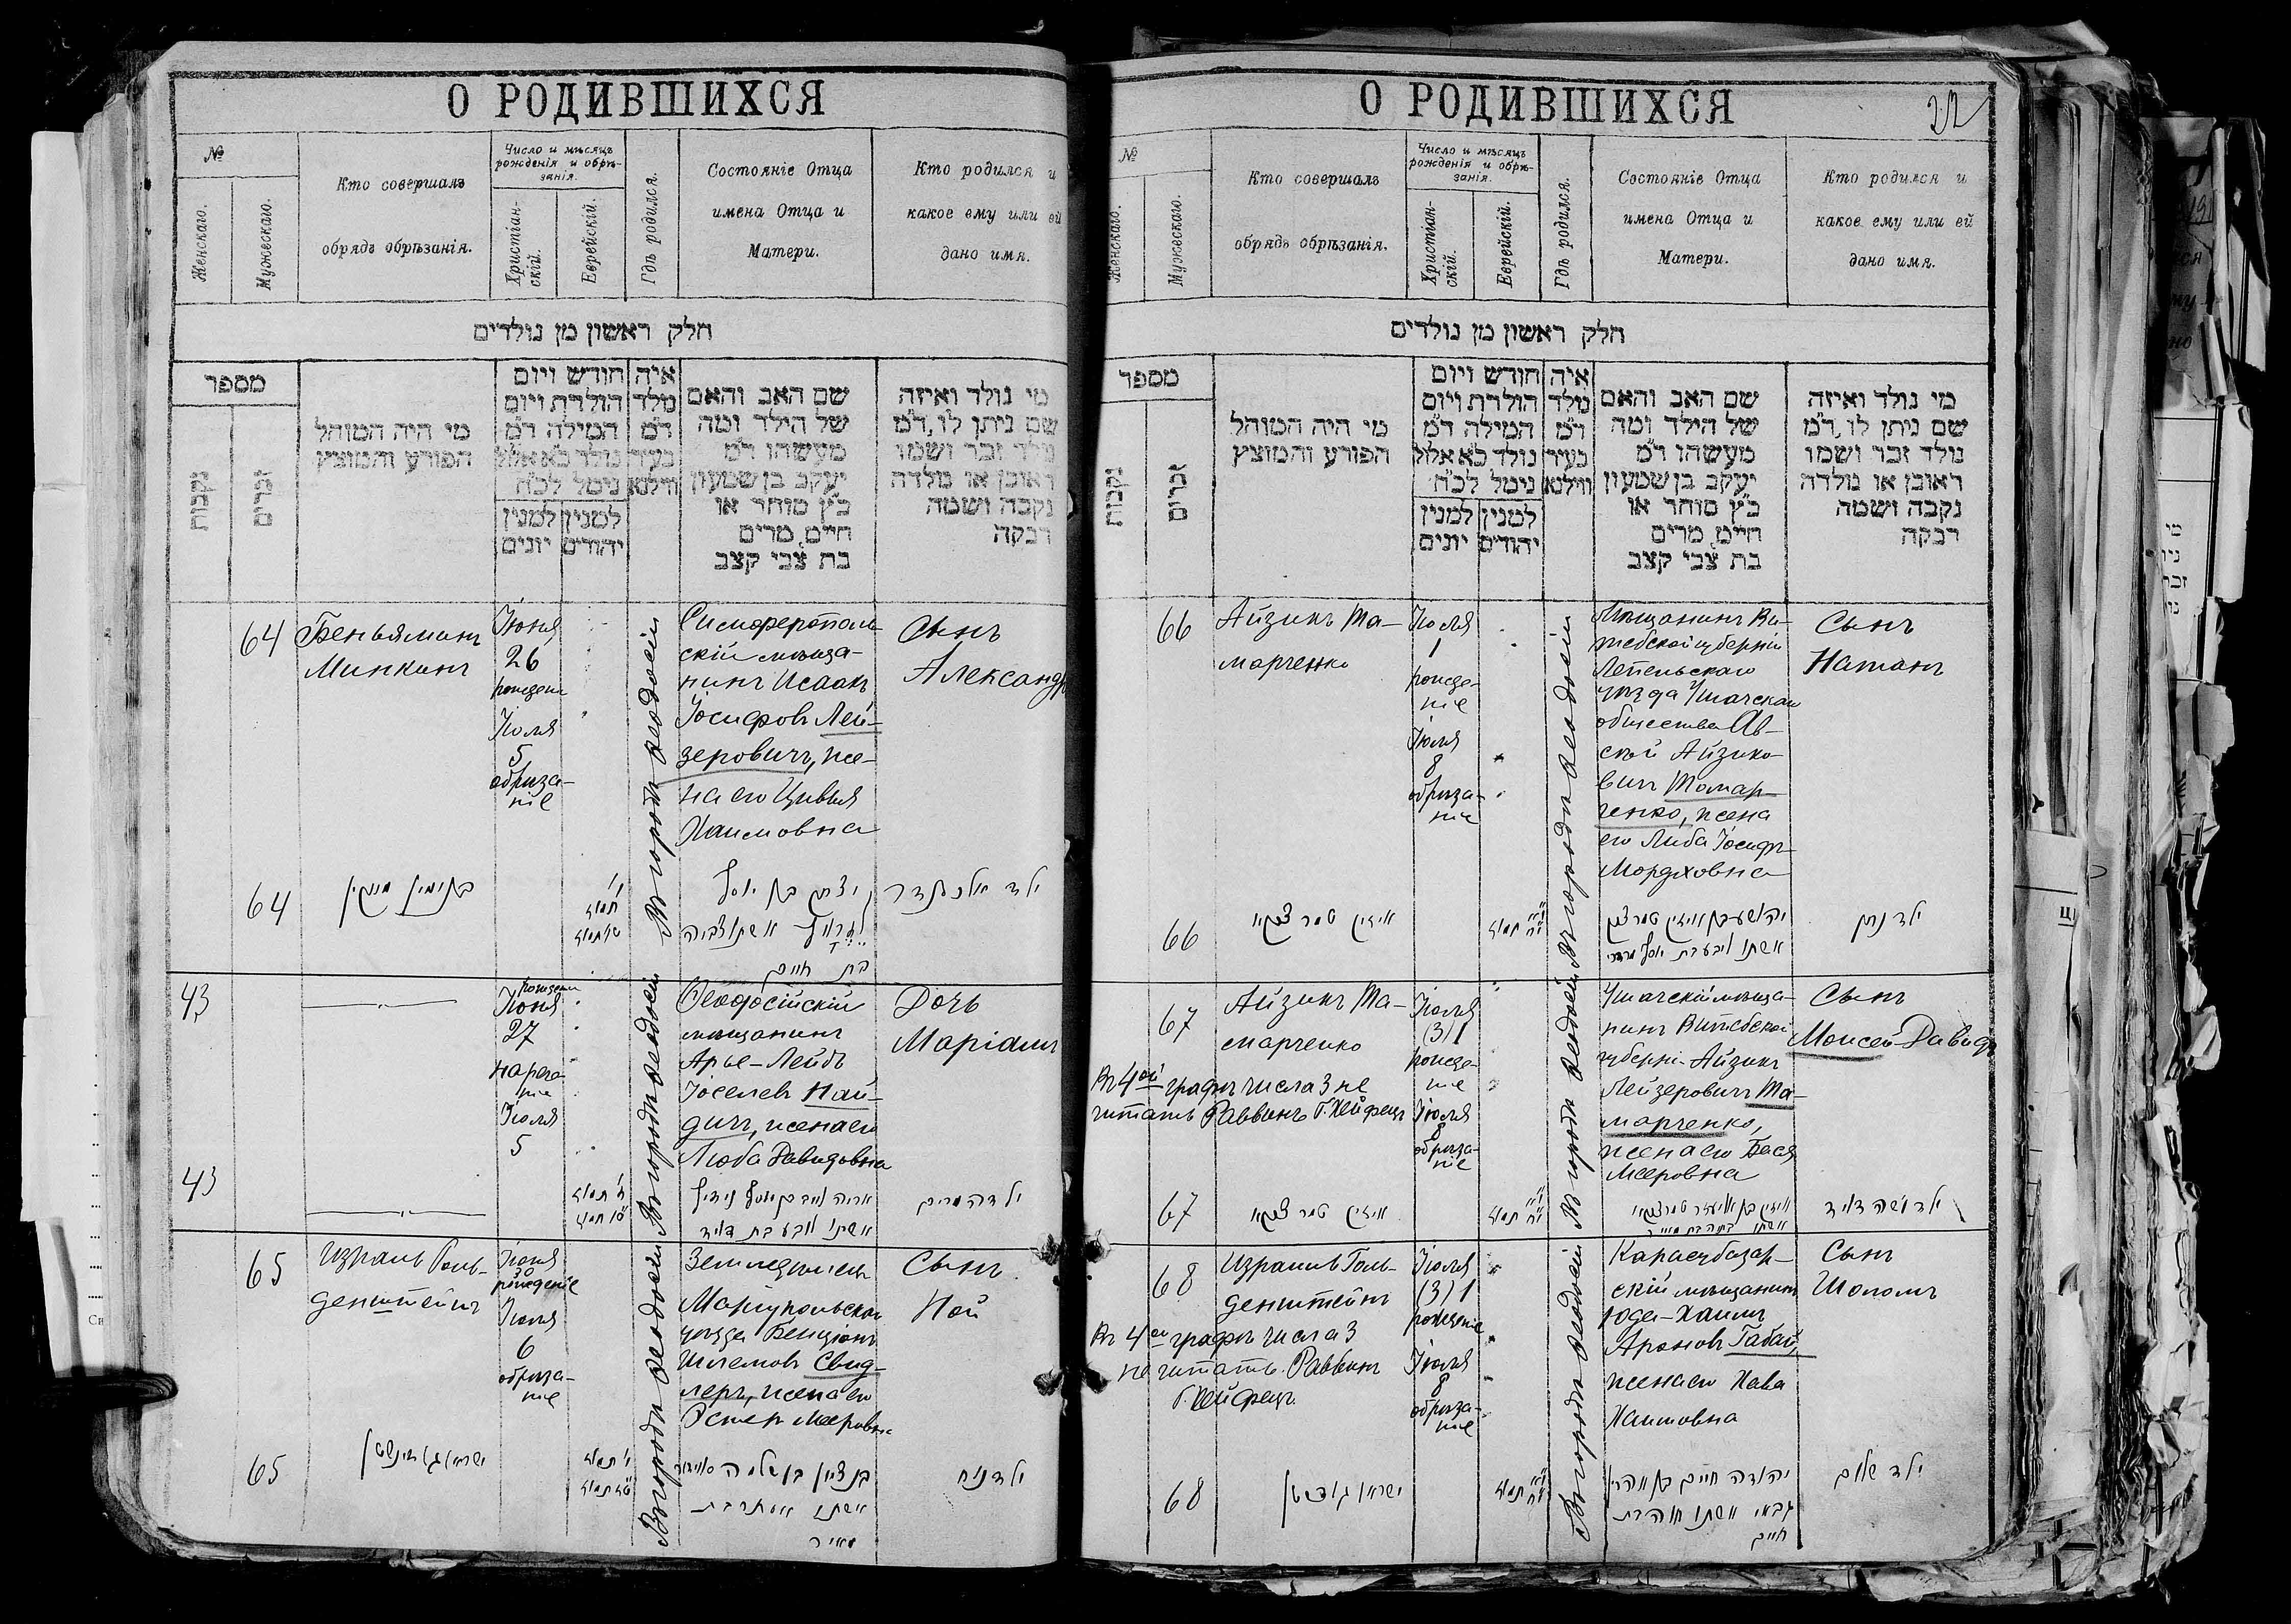 О РОДИВШИХСЯ
№
Женскаго.
Мужескаго.
Кто совершалъ
обрядъ обрѣзанія.
Число и мѣсяцъ
рожденія и обрѣ-
занія.
Христіан-
скій.
Еврейскій.
Гдѣ родился.
Состояніе Отца
имена Отца и
Матери.
Кто родился и
какое ему или ей
дано имя.
חלק ראשון מן נולדים
מספר
נקבות
זכרים
מי היה המוהל
הפורע והמוצץ
חודש ויום
הולדת ויום
המילה ד״מ
נולד כ״א אלול
נימול לכ״ח
למנין למנין
יהודים יונים
איה
מלד
ד״מ
בעיר
ווילנא
שם האב והאם
של הילד ומה
מעשהו ד״מ
יעקב בן שמעון
כ״ץ סוחר או
חיים, מרים
בת צבי קצב
מי נולד ואיזה
שם ניתן לו, ד״מ
נולד זכר ושמו
ראובן או נולדה
נקבה ושמה
רבקה
64
Беньяминъ
Минкинъ
Іюня
26
рожденіе
Іюля
5
обрѣза-
ніе
Въ городѣ Ѳеодосіи
Симферополь-
скій мѣща-
нинъ Исаакъ
Іосифовъ Лей-
зеровичъ, же-
на его Цивья
Хаимовна
Сынъ
Александръ
64
בנימין מינקין
תמוז
יצחק בן יוסף
אשתו צביה
בת חיים
ילד אלכסנדר
43
Іюня
27
нарече-
ніе
Іюля
5
Въ городѣ Ѳеодосіи
Ѳеодосійскій
мѣщанинъ
Арье-Лейбъ
Іоселевъ Най-
дичъ, жена его
Люба Давидовна
Дочь
Маріамъ
43
אריה לייב בן יוסף נידיץ
אשתו ליבע בת דוד
ילדה מרים
65
Израиль Голь-
денштейнъ
Іюня
30
рожденіе
Іюля
6
обрѣза-
ніе
Въ городѣ Ѳеодосіи
Земледѣлецъ
Маріупольскаго
уѣзда Бенціонъ
Шлемовъ Свид-
леръ, жена его
Эстеръ Мееровна
Сынъ
Ной
65
בן ציון בן שלמה
אשתו אסתר בת
מאיר
ילד נח
О РОДИВШИХСЯ
22
№
Женскаго.
Мужескаго.
Кто совершалъ
обрядъ обрѣзанія.
Число и мѣсяцъ
рожденія и обрѣ-
занія.
Христіан-
скій.
Еврейскій.
Гдѣ родился.
Состояніе Отца
имена Отца и
Матери.
Кто родился и
какое ему или ей
дано имя.
חלק ראשון מן נולדים
מספר
נקבות
זכרים
מי היה המוהל
הפורע והמוצץ
חודש ויום
הולדת ויום
המילה ד״מ
נולד כ״א אלול
נימול לכ״ח
למנין למנין
יהודים יונים
איה
מלד
ד״מ
בעיר
ווילנא
שם האב והאם
של הילד ומה
מעשהו ד״מ
יעקב בן שמעון
כ״ץ סוחר או
חיים, מרים
בת צבי קצב
מי נולד ואיזה
שם ניתן לו, ד״מ
נולד זכר ושמו
ראובן או נולדה
נקבה ושמה
רבקה
66
Айзикъ Та-
марченко
Іюля
1
рожде-
ніе
Іюля
8
обрѣза-
ніе
Въ городѣ Ѳеодосіи
Мѣщанинъ Ви-
тебской губерніи
Лепельскаго
уѣзда Ушачскаго
общества Ав-
сѣй Айзико-
вичъ Тамар-
ченко, жена
его Либа Іосифъ-
Мордховна
Сынъ
Натанъ
66
ילד נתן
67
Айзикъ Та-
марченко
Іюля
(3) 1
рожде-
ніе
Іюля
8
обрѣза-
ніе
Въ 4ой графѣ числа 3 не
читать Раввинъ Г. Хейфецъ
Въ городѣ Ѳеодосіи
Ушачскій мѣща-
нинъ Витебской
губерніи Айзикъ
Лейзеровичъ Та-
марченко,
жена его Бася
Мееровна
Сынъ
Моисей-Давидъ
67
ילד משה דוד
68
Израиль Голь-
денштейнъ
Іюля
(3) 1
рожденіе
Іюля
8
обрѣза-
ніе
Въ 4ой графѣ числа 3
не читать. Раввинъ
Г. Хейфецъ.
Въ городѣ Ѳеодосіи
Карасубазар-
скій мѣщанинъ
Юда-Хаимъ
Ароновъ Габай,
жена его Хава
Хаимовна
Сынъ
Шоломъ
68
יהודה חיים בן אהרן
גבאי אשתו חוה בת
חיים
ילד שלום